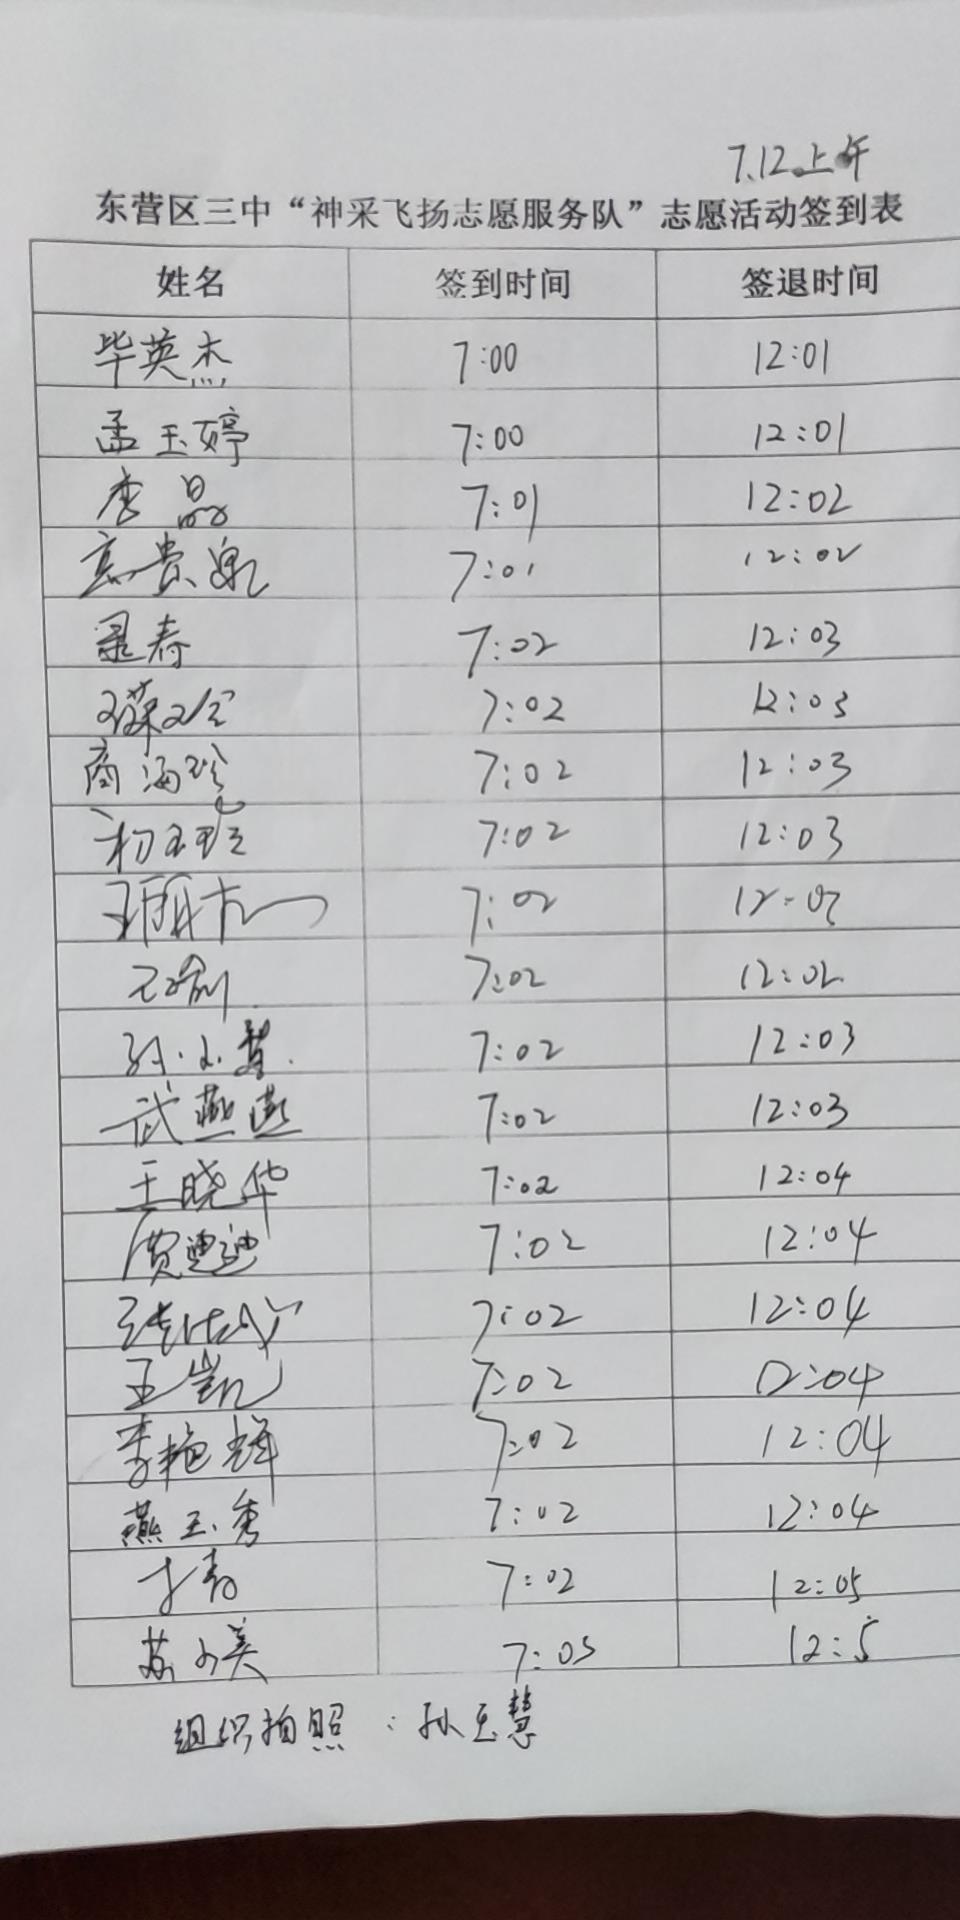 7.12.上午
东营区三中“神采飞扬志愿服务队”志愿活动签到表
姓名 签到时间 签退时间
毕英杰 7:00 12:01
孟玉婷 7:00 12:01
李晶 7:01 12:02
高贵泉 7:01 12:02
寿 7:02 12:03
7:02 12:03
商海珍 7:02 12:03
初 7:02 12:03
王 7:02 12:02
7:02 12:02
孙小慧 7:02 12:03
武燕燕 7:02 12:03
王晓华 7:02 12:04
贾迪迪 7:02 12:04
7:02 12:04
王凯 7:02 12:04
李艳辉 7:02 12:04
燕玉秀 7:02 12:04
青 7:02 12:05
苏小美 7:05 12:5
组织拍照：孙玉慧